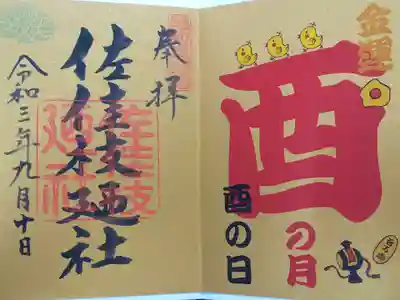 金運
酉
の月
酉の日
奉拝
佐佳枝廼社
佐佳枝
廼社
令和三年九月十日